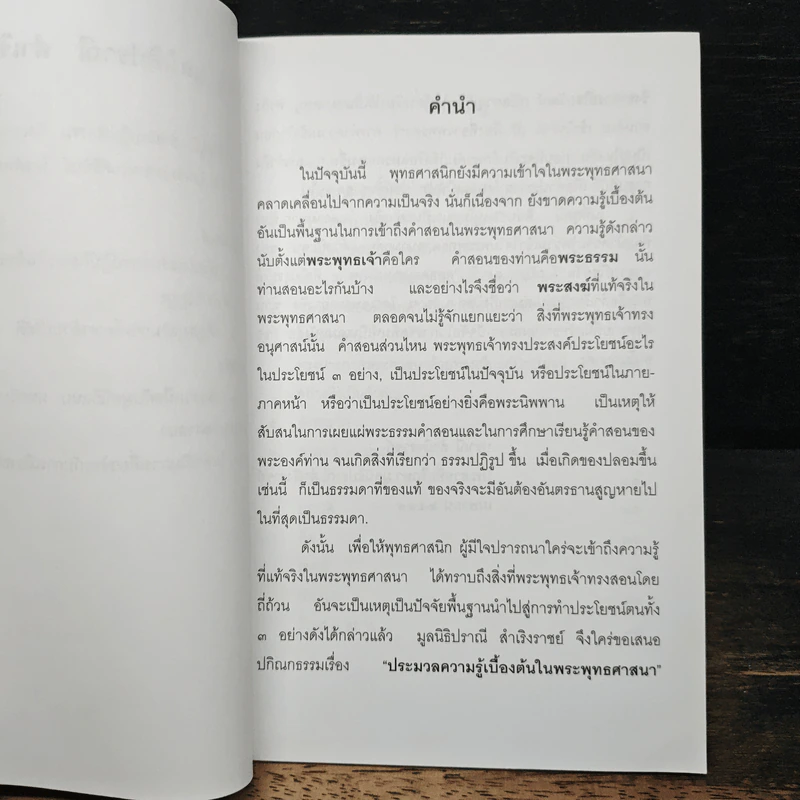 คำนำ
ในปัจจุบันนี้ พุทธศาสนิกยังมีความเข้าใจในพระพุทธศาสนา
คลาดเคลื่อนไปจากความเป็นจริง นั่นก็เนื่องจาก ยังขาดความรู้เบื้องต้น
อันเป็นพื้นฐานในการเข้าถึงคำสอนในพระพุทธศาสนา ความรู้ดังกล่าว
นับตั้งแต่พระพุทธเจ้าคือใคร คำสอนของท่านคือพระธรรม นั้น
ท่านสอนอะไรกันบ้าง และอย่างไรจึงชื่อว่า พระสงฆ์ที่แท้จริงใน
พระพุทธศาสนา ตลอดจนไม่รู้จักแยกแยะว่า สิ่งที่พระพุทธเจ้าทรง
อนุศาสน์นั้น คำสอนส่วนไหน พระพุทธเจ้าทรงประสงค์ประโยชน์อะไร
ในประโยชน์ ๓ อย่าง, เป็นประโยชน์ในปัจจุบัน หรือประโยชน์ในภาย-
ภาคหน้า หรือว่าเป็นประโยชน์อย่างยิ่งคือพระนิพพาน เป็นเหตุให้
สับสนในการเผยแผ่พระธรรมคำสอนและในการศึกษาเรียนรู้คำสอนของ
พระองค์ท่าน จนเกิดสิ่งที่เรียกว่า ธรรมปฏิรูป ขึ้น เมื่อเกิดของปลอมขึ้น
เช่นนี้ ก็เป็นธรรมดาที่ของแท้ ของจริงจะมีอันต้องอันตรธานสูญหายไป
ในที่สุดเป็นธรรมดา.
ดังนั้น เพื่อให้พุทธศาสนิก ผู้มีใจปรารถนาใคร่จะเข้าถึงความรู้
ที่แท้จริงในพระพุทธศาสนา ได้ทราบถึงสิ่งที่พระพุทธเจ้าทรงสอนโดย
ถี่ถ้วน อันจะเป็นเหตุเป็นปัจจัยพื้นฐานนำไปสู่การทำประโยชน์ตนทั้ง
๓ อย่างดังได้กล่าวแล้ว มูลนิธิปราณี สำเริงราชย์ จึงใคร่ขอเสนอ
ปกิณกธรรมเรื่อง “ประมวลความรู้เบื้องต้นในพระพุทธศาสนา”